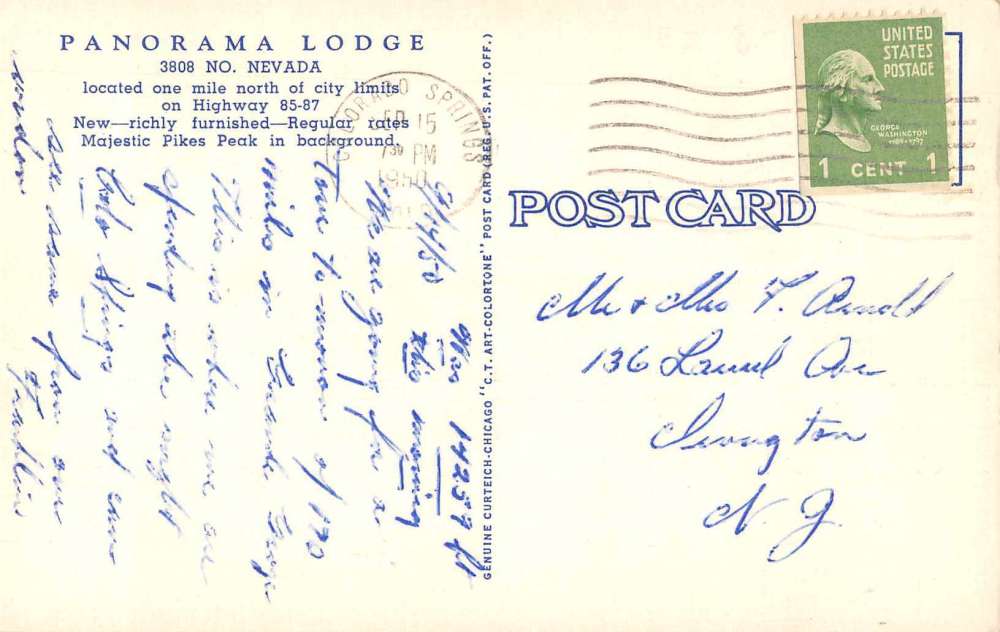 PANORAMA LODGE
3808 NO. NEVADA
located one mile north of city limits
on Highway 85-87
New—richly furnished—Regular rates
Majestic Pikes Peak in background.
COLORADO SPRINGS
SEP 15
730 PM
1950
COLO
UNITED
STATES
POSTAGE
GEORGE
WASHINGTON
1789-1797
1 CENT 1
POST CARD
GENUINE CURTEICH-CHICAGO "C.T. ART-COLORTONE" POST CARD (REG. U.S. PAT. OFF.)
Mr & Mrs F. Arnold
136 Laurel Ave
Irvington
N J.
9/14/50 Was 14259 ft
this morning
We are going for a
Tour to-morrow of 170
miles in Grande Gorge
This is where we are
spending the night
Colo Springs and can
see same from our
window